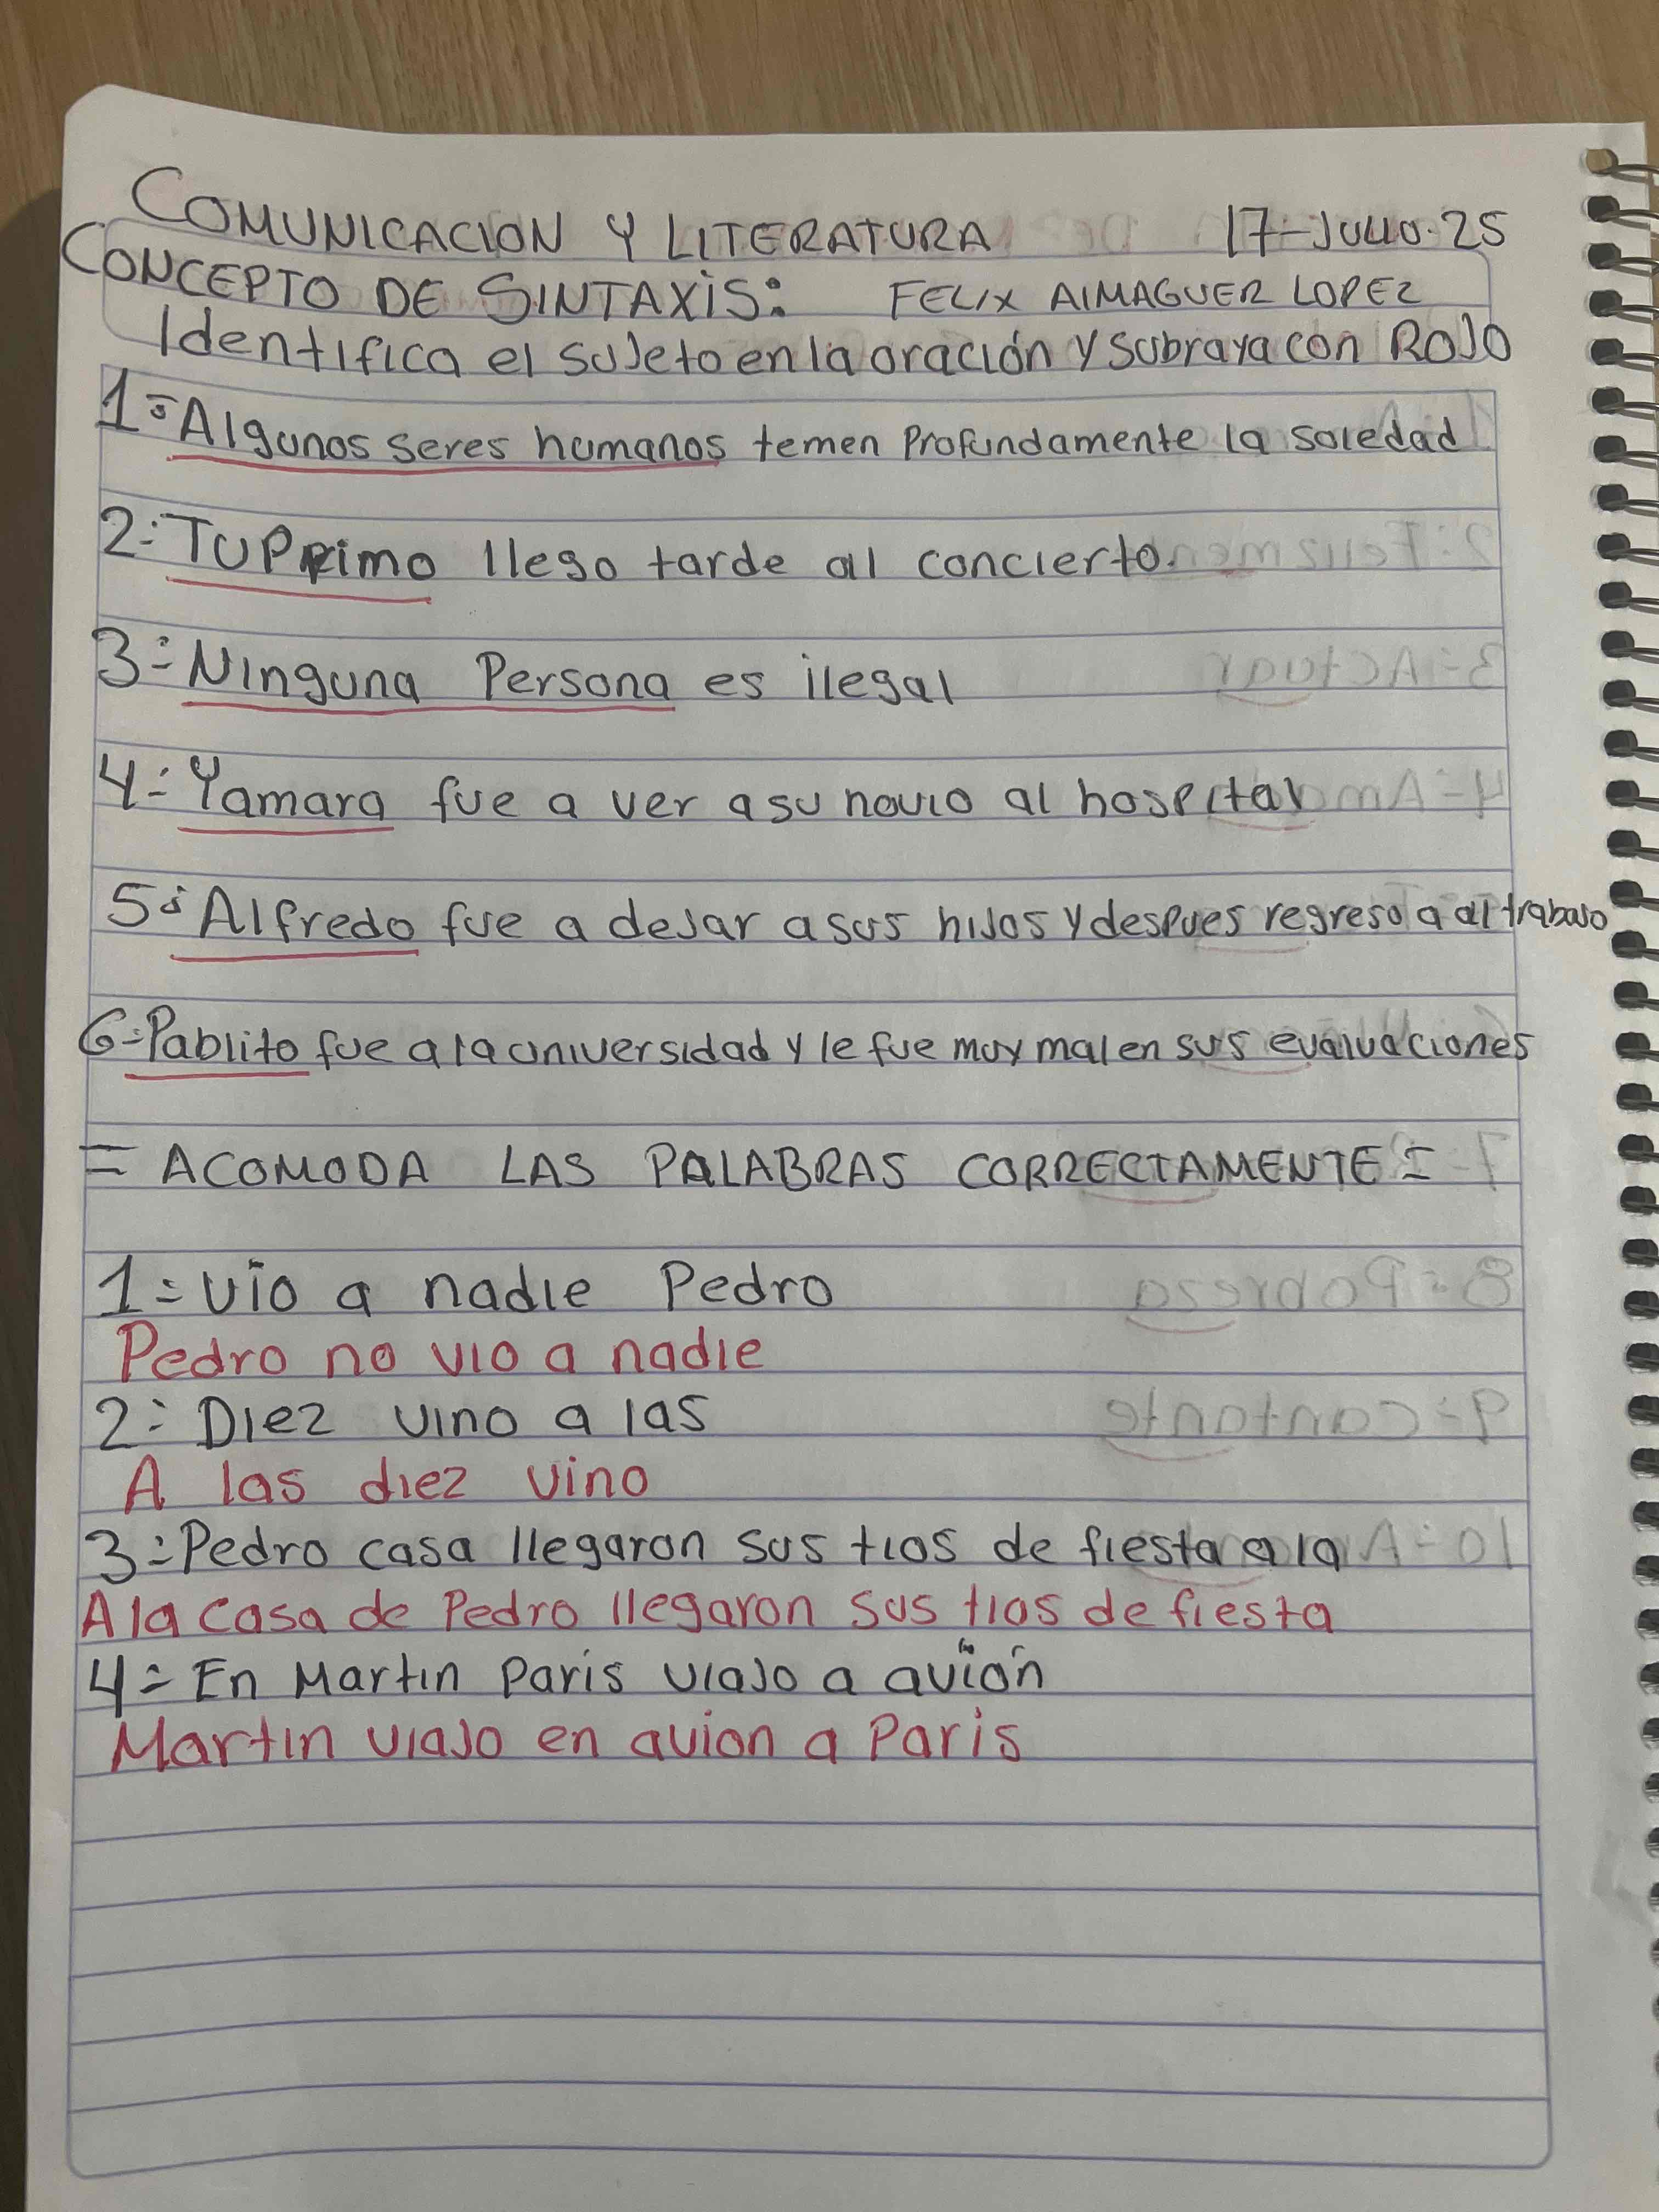 COMUNICACION Y LITERATURA 17-JULIO.25
CONCEPTO DE SINTAXIS: FELIX AlMAGUER LOPEZ
Identifica el sujeto en la oración y subraya con ROJO
1= Algunos seres humanos temen Profundamente la soledad
2= TU PRimo llego tarde al concierto.
3= Ninguna Persona es ilegal
4= Yamara fue a ver a su novio al hospital
5= Alfredo fue a dejar a sus hijos y despues regreso a al trabajo
6= Pablito fue a la universidad y le fue muy mal en sus evaluaciones
= ACOMODA LAS PALABRAS CORRECTAMENTE =
1= vio a nadie Pedro
Pedro no vio a nadie
2= Diez vino a las
A las diez vino
3= Pedro casa llegaron sus tios de fiesta a la
A la casa de Pedro llegaron sus tios de fiesta
4= En Martin Paris viajo a avión
Martin viajo en avion a Paris